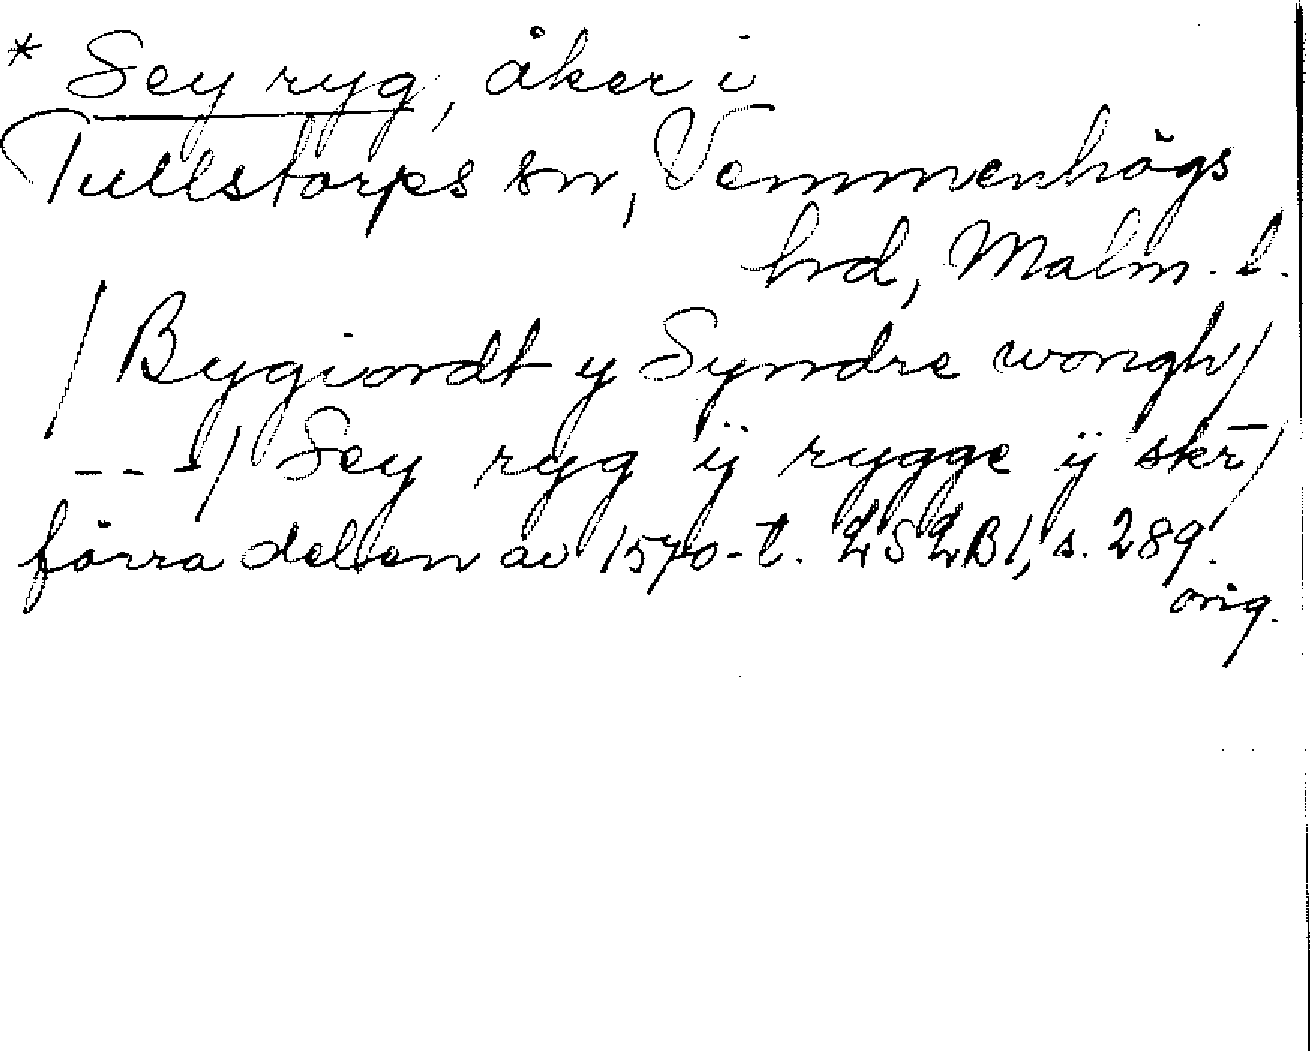 * Sey ryg, åker i
Tullstorps sn, Vemmenhögs
hrd, Malm. l.
/Bygiordt y Syndre wongh/
---/ Sey ryg ÿ rygge ÿ skr̄/
förra delen av 1570-t. LSLB1, s. 289.
orig.